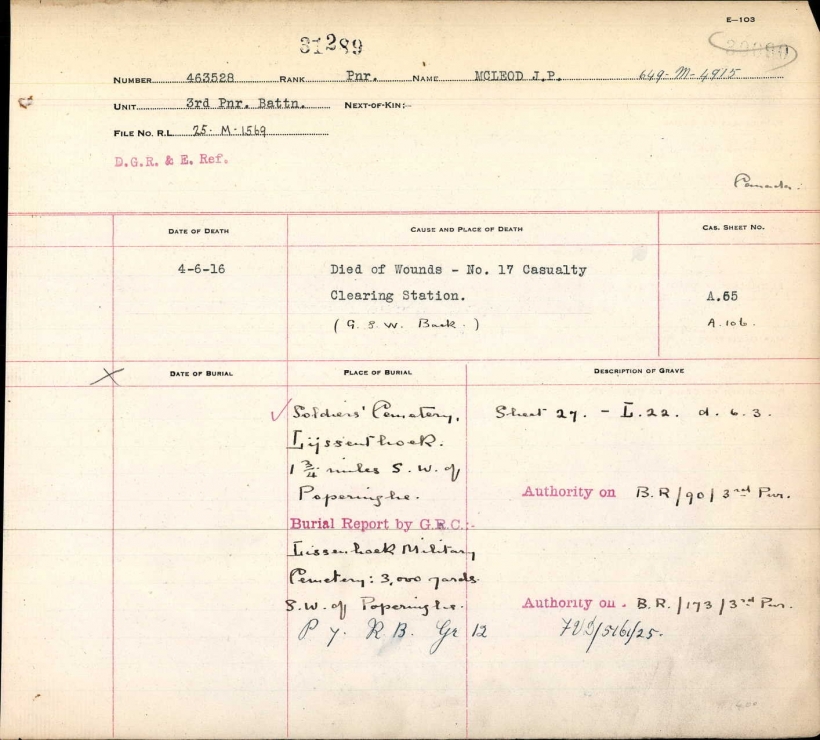 E—103
31289
NUMBER 463528 RANK Pnr. NAME MCLEOD J.P. 649-M-4915
UNIT 3rd Pnr. Battn. NEXT-OF-KIN:-
FILE NO. R.L. 25-M-1569
D.G.R. & E. Ref.
Canada.
DATE OF DEATH CAUSE AND PLACE OF DEATH CAS. SHEET NO.
4-6-16 Died of Wounds - No. 17 Casualty
Clearing Station. A.65
(G.S.W. Back.) A.106.
DATE OF BURIAL PLACE OF BURIAL DESCRIPTION OF GRAVE
Soldiers' Cemetery, Sheet 27. - L.22. d. 6.3.
Lijssenthoek.
1 3/4 miles S.W. of
Poperinghe. Authority on B.R/90/3rd Pnr.
Burial Report by G.R.C.:-
Lissenhoek Military
Cemetery: 3,000 yards
S.W. of Poperinghe. Authority on. B.R./173/3rd Pnr.
P 7. R B. Gr 12